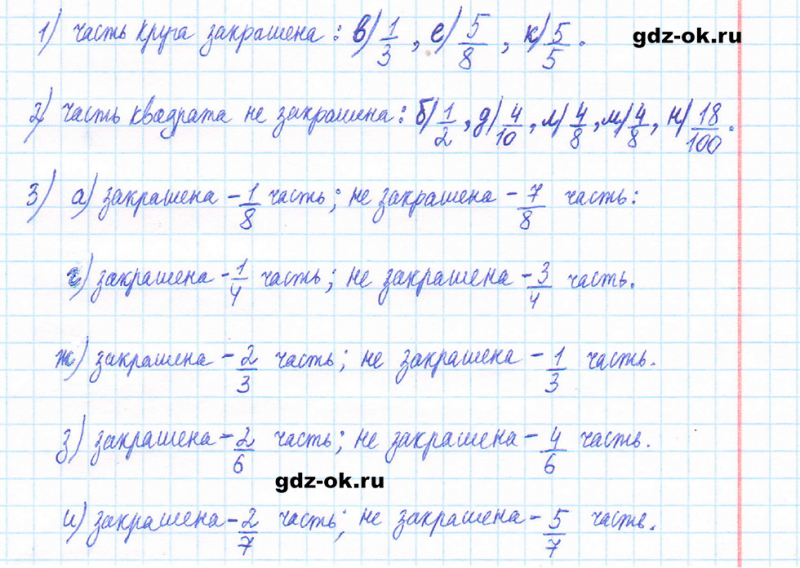 1) часть круга закрашена: в) 1/3, е) 5/8, к) 5/5.
gdz-ok.ru
2) часть квадрата не закрашена: б) 1/2, д) 4/10, л) 4/8, м) 4/8, н) 18/100.
3) а) закрашена - 1/8 часть; не закрашена - 7/8 часть:
г) закрашена - 1/4 часть; не закрашена - 3/4 часть.
ж) закрашена - 2/3 часть; не закрашена - 1/3 часть.
з) закрашена - 2/6 часть; не закрашена - 4/6 часть.
gdz-ok.ru
и) закрашена - 2/7 часть; не закрашена - 5/7 часть.